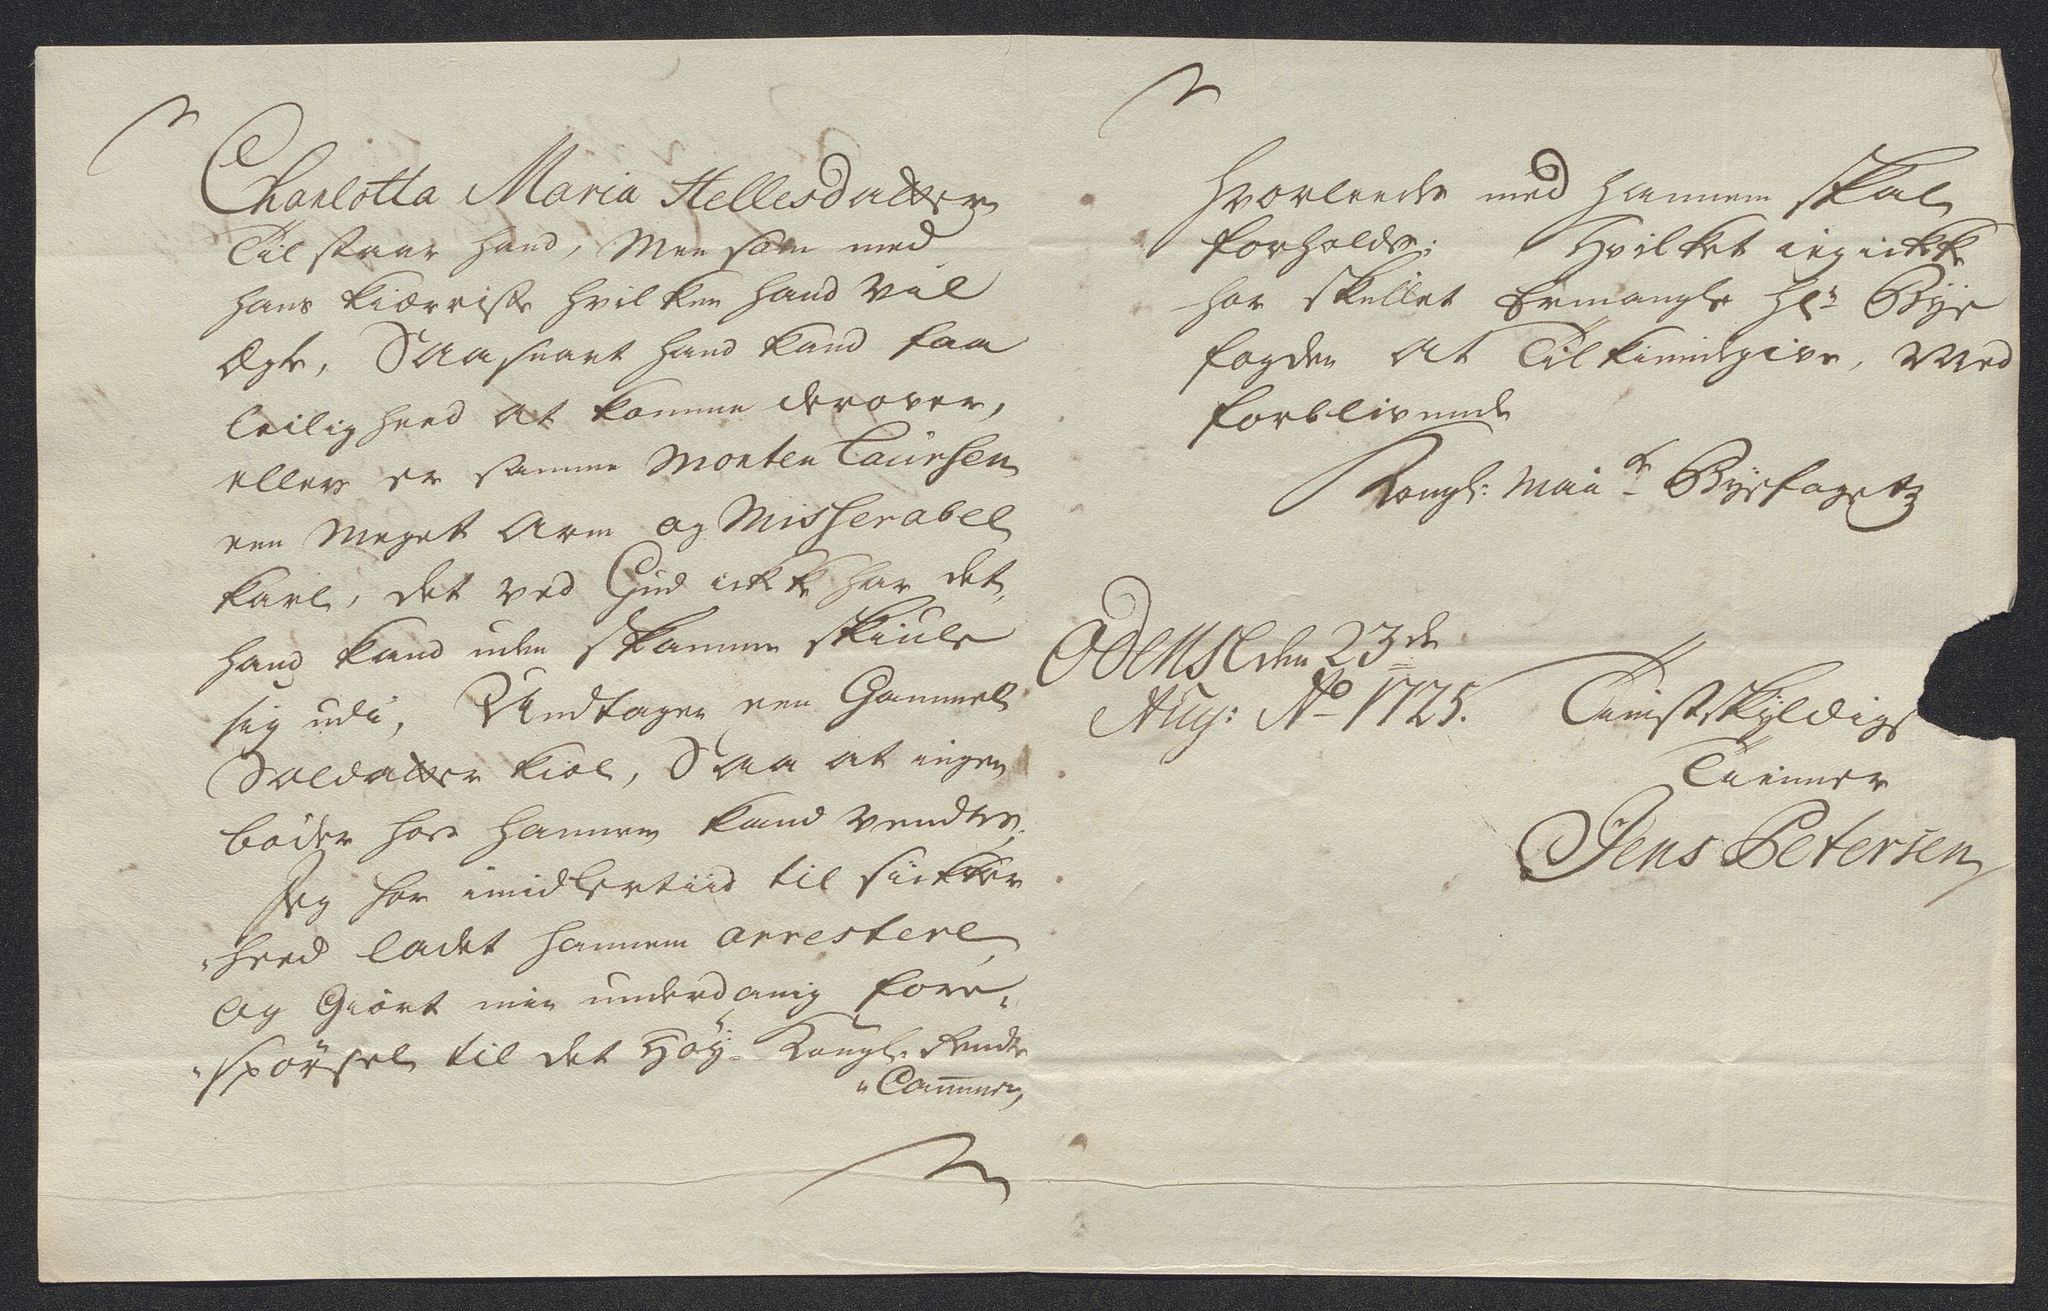 Charlotta Maria Hellesdatter
Tilstaar hand, Men som med
hans kiæreste hvilken hand vil
Ægte, Saasnart hand kand faa
leilighed at komme derover,
ellers er samme Morten Laursen
een meget Arm og Misserabel
karl, det ved Gud ickke har det,
hand kand uden skamme skiule
sig udi, Undtagen een Gammel
Soldatter kiol, Saa at ingen
bøder hos hannem kand ventes,
Jeg har imidlertiid til sicker
"heed ladet hannem arrestere,
og Giort min underdanig fore"
"spørsel til det Høy- Kongl: Rendte
"Cammer,
hvorleedes med hannem skal
forholdes: Hvilket ieg ickke
har skullet Ermangle Hr: Bye
fogden at Tilkiendegive, Med
forblivende
Kongl: Maits Byefogets
Odense den 23de
Aug: Ao 1725.
Tienstskyldige
Tienner
Jens Petersen